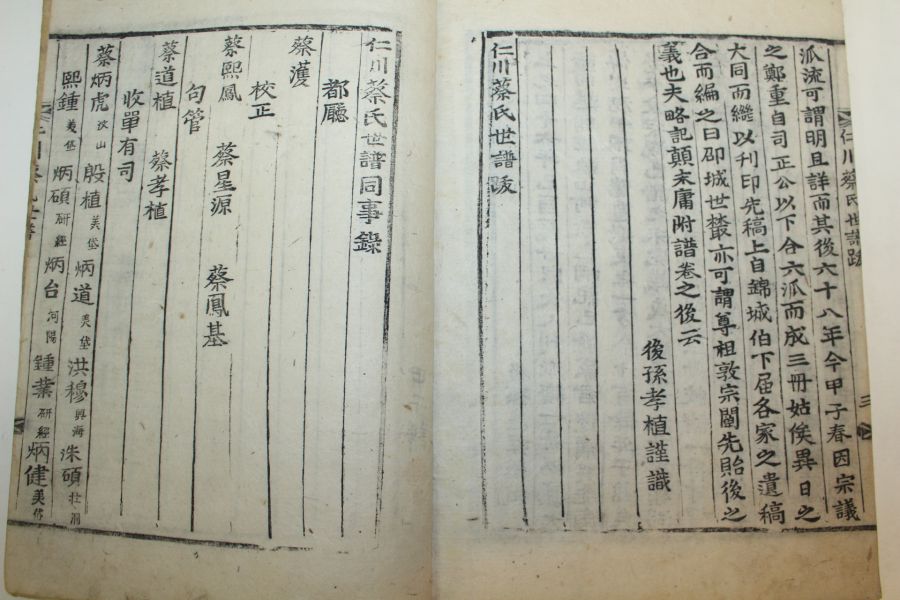 仁川蔡氏世譜跋
三
派流可謂明且詳而其後六十八年今甲子春因宗議
之鄭重自司正公以下合六派而成三冊姑俟異日之
大同而繼以刊印先稿上自錦城伯下届各家之遺稿
合而編之曰邵城世叢亦可謂尊祖敦宗闡先貽後之
義也夫略記顛末庸附譜卷之後云
後孫孝植謹識
仁川蔡氏世譜跋
仁川蔡氏世譜同事錄
都廳
蔡濩
校正
蔡熙鳳 蔡星源 蔡鳳基
句管
蔡道植 蔡孝植
收單有司
蔡炳虎 汶山 殷植 美岱 炳道 美岱 洪穆 興海 洙碩 壯洞
熙鍾 美岱 炳碩 研經 炳台 河陽 鍾業 研經 炳健 美岱
仁川蔡氏世譜